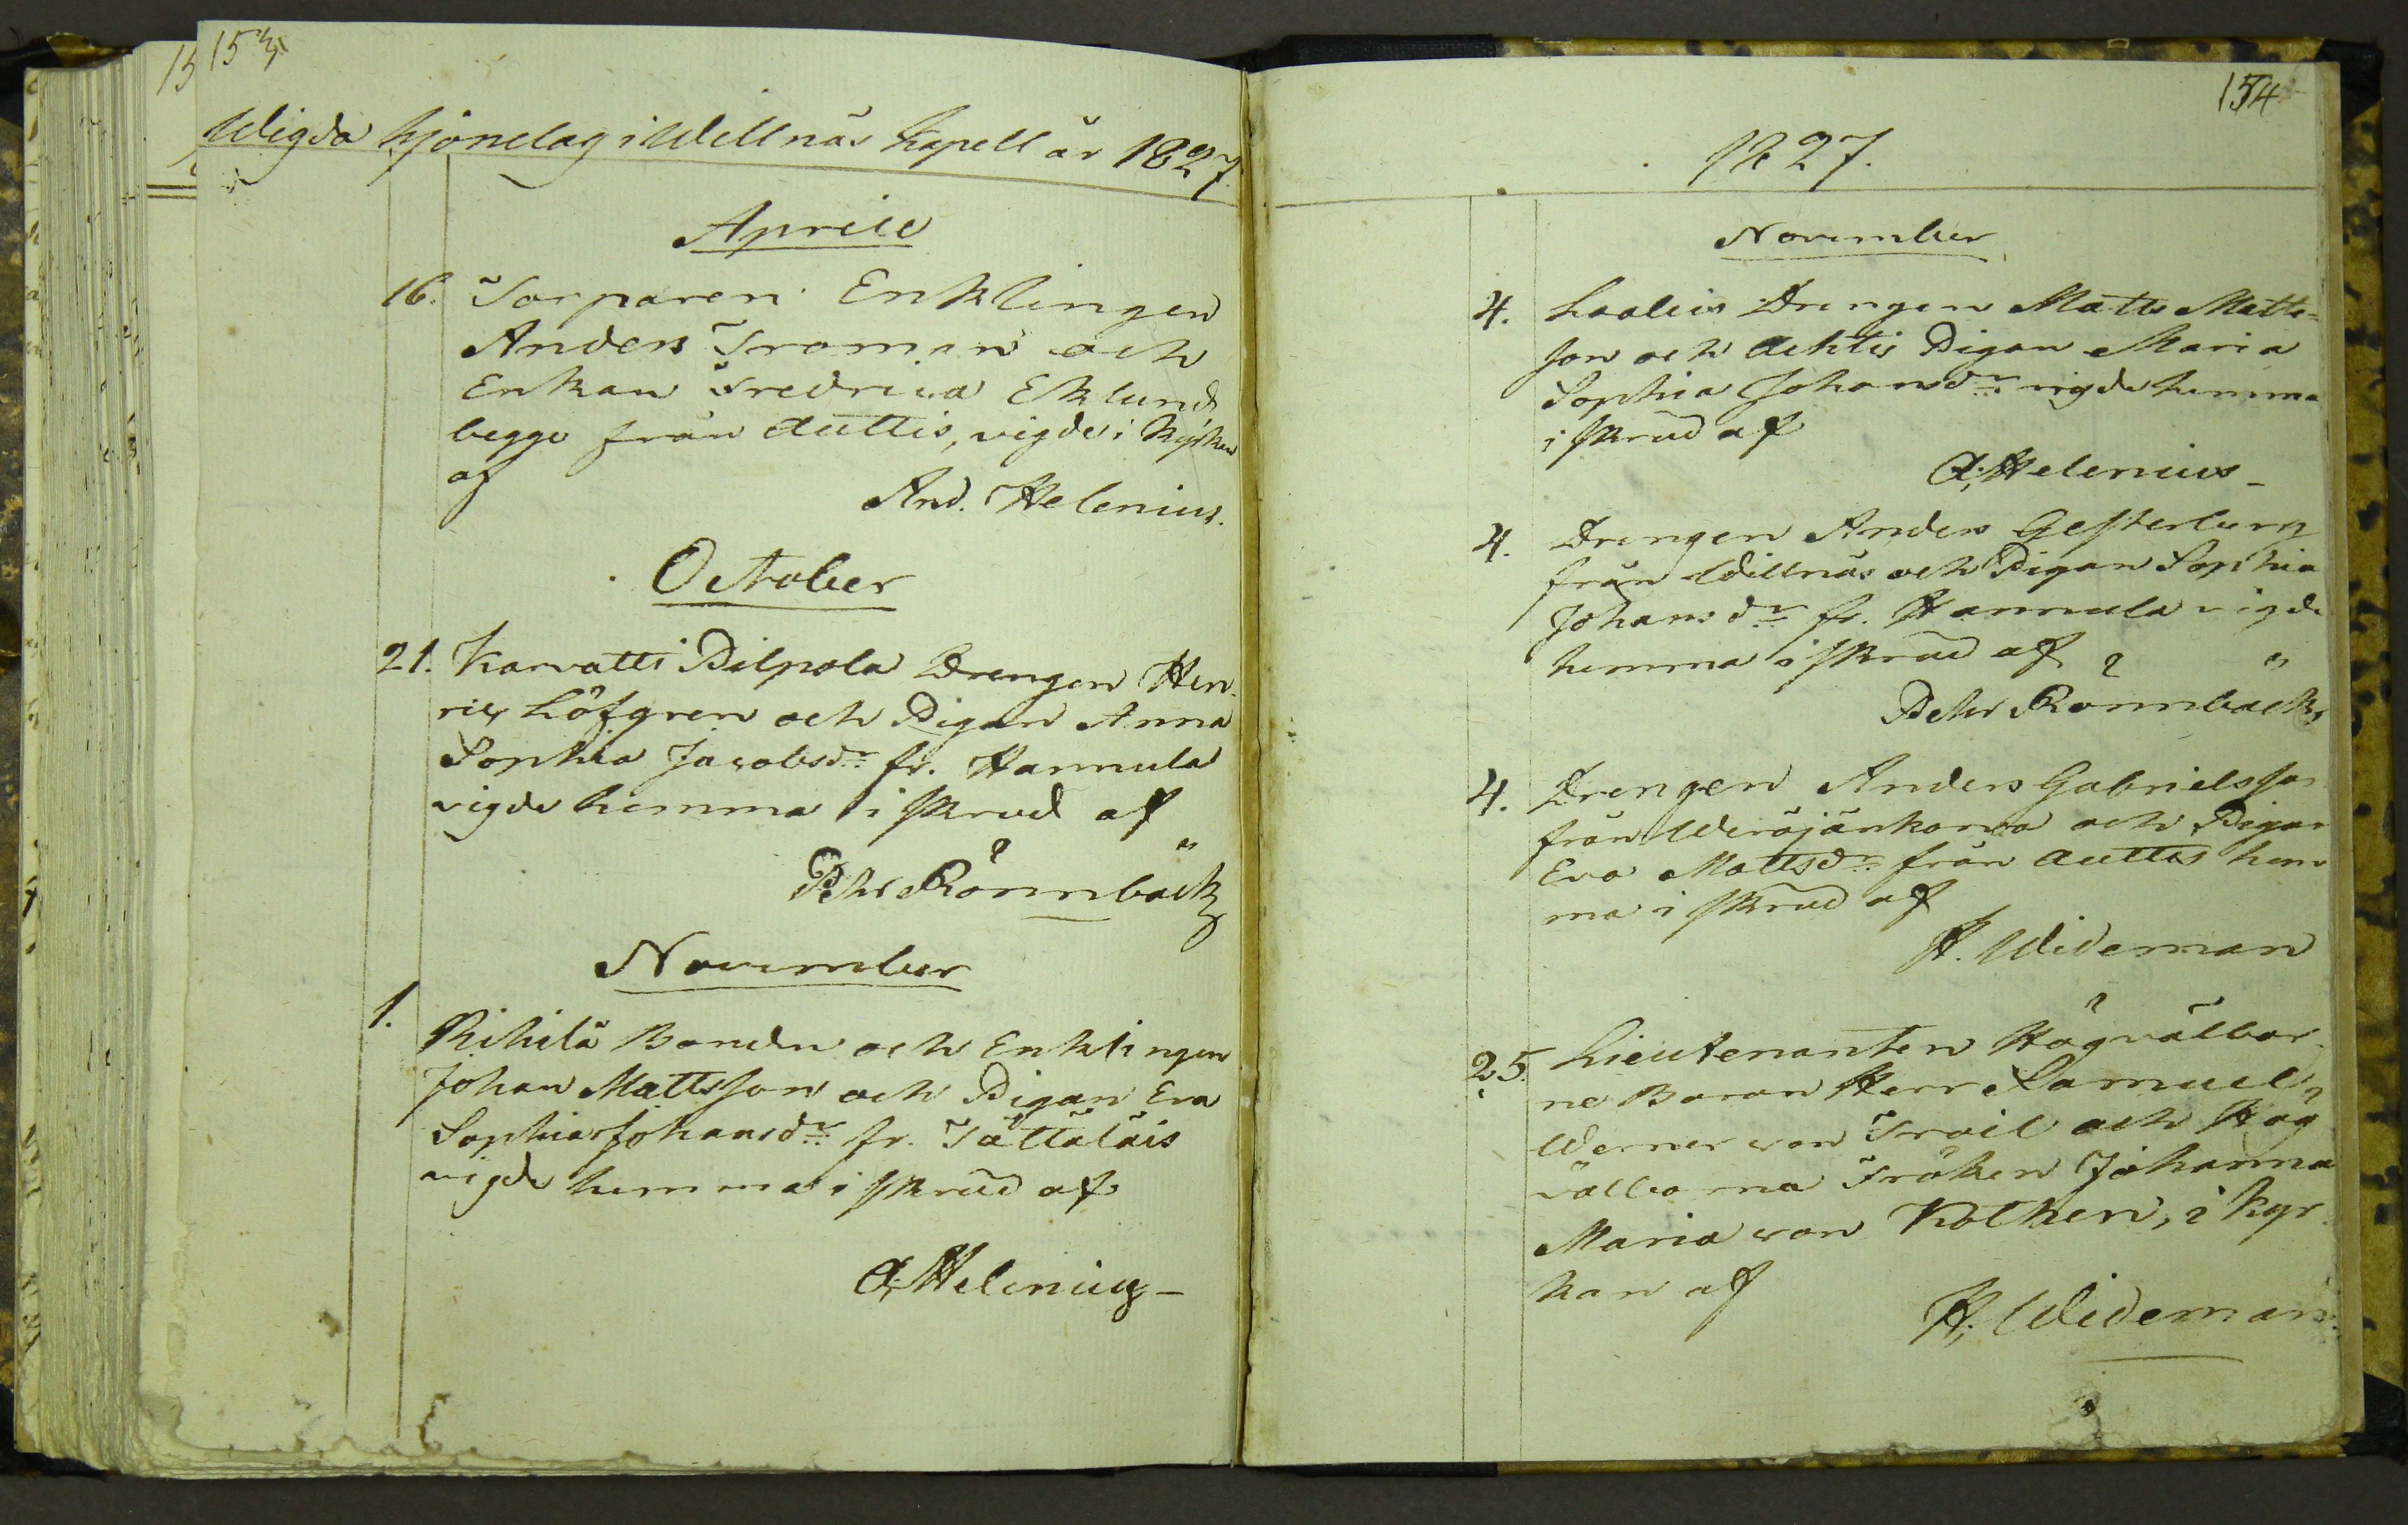 153
Wigda hjonelag i Willnäs Kapell år 1827.
Aprill
16. Torparen Enklingen
Anders Froman och
Enkan Fredrica Eklund
begge från Auttis, vigde i Kyrkan
af
And. Helenius.
October
21. Karvatti Pilpola Drengen Hen-
ric Löfgren och Pigan Anna
Sophia Jacobsdr fr. Hannula
vigde hemma i skrud af
Pehr Rönnbäck
November
1. Rihilä Bonden och Enklingen
Johan Mattsson och Pigan Eva
Sophia Johansdr fr. Tättäläis
vigde hemma i skrud af
A. Helenius
154
1827.
November
4. Laalus Drengen Matts Matts-
son och Achtis Pigan Maria
Sophia Johansdr vigde hemma
i skrud af
A. Helenius
4. Drengen Anders Gesterberg
från Willnäs och Pigan Sophia
Johansdr fr. Hannula vigde
hemma i skrud af
Pehr Rönnbäck
4. Drengen Anders Gabrielsson
från och Pigan
Eva Mattsdr från Auttis hem
ma i skrud af
H. Wideman
25. Lieutenanten Högvälbor-
ne Baron Herr Samuel
Werner von Troil och Hög
välborna Fröken Johanna
Maria von Kothen, i Kyr-
kan af
H. Wideman